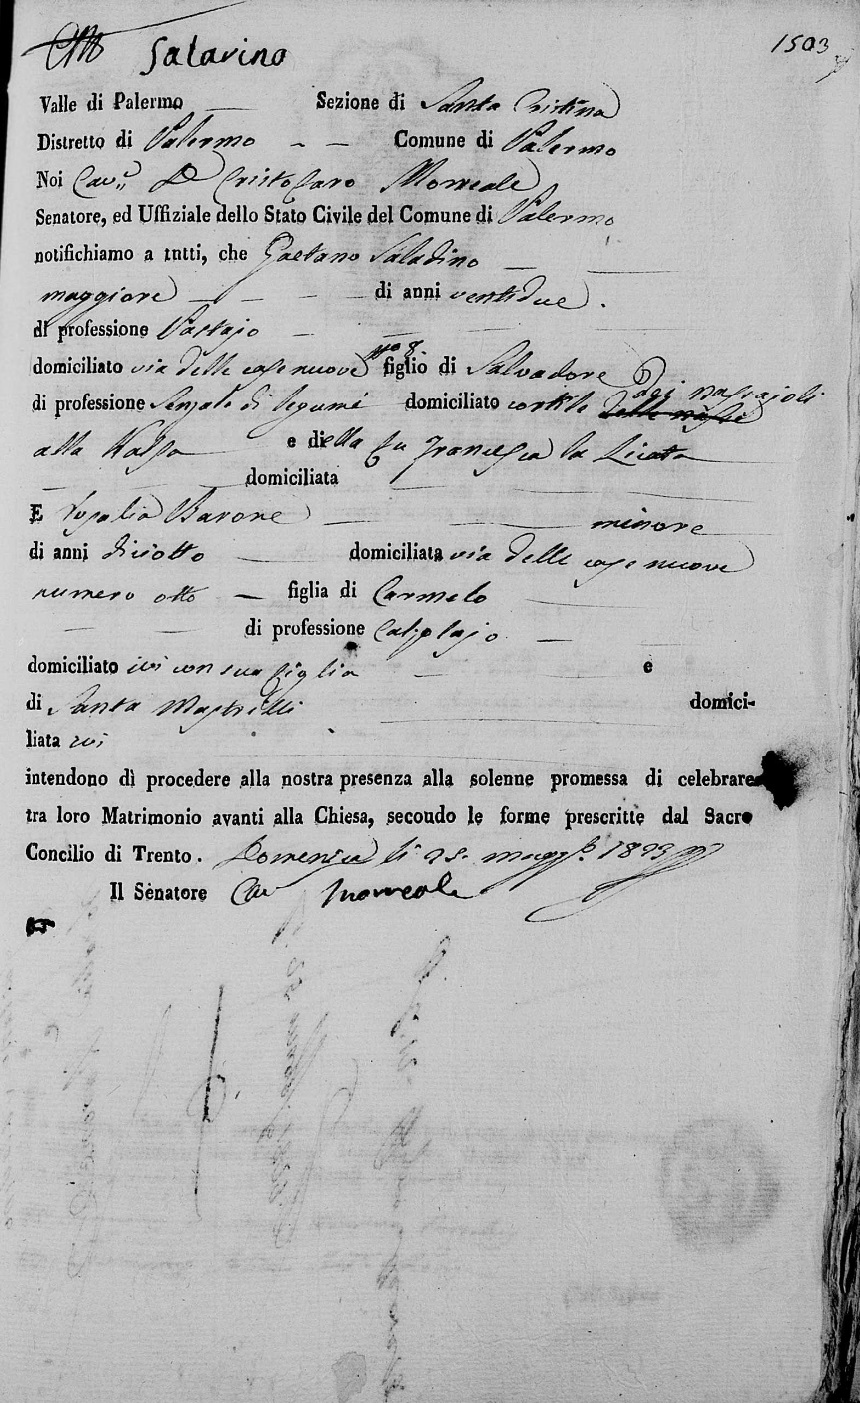 Salavino 1503
Valle di Palermo Sezione di Santa Cristina
Distretto di Palermo Comune di Palermo
Noi Cav.r D Cristofaro Morreale
Senatore, ed Uffiziale dello Stato Civile del Comune di Palermo
notifichiamo a tutti, che Gaetano Saladino
maggiore di anni ventidue.
di professione Pastajo
domiciliato via delle case nuove no 8 figlio di Salvadore
di professione Senzale di legumi domiciliato cortile delle nasse dei nassajoli
alla Kalsa e della fu Francesca la Licata
domiciliata
E Rosalia Barone minore
di anni diciotto domiciliata via delle case nuove
numero otto figlia di Carmelo
di professione Calzolajo
domiciliato ivi con sua figlia e
di Santa Mastrilli domici-
liata ivi
intendono di procedere alla nostra presenza alla solenne promessa di celebrare
tra loro Matrimonio avanti alla Chiesa, secondo le forme prescritte dal Sacro
Concilio di Trento. Domenica li 25. maggio 1823
Il Senatore Cav Morreale